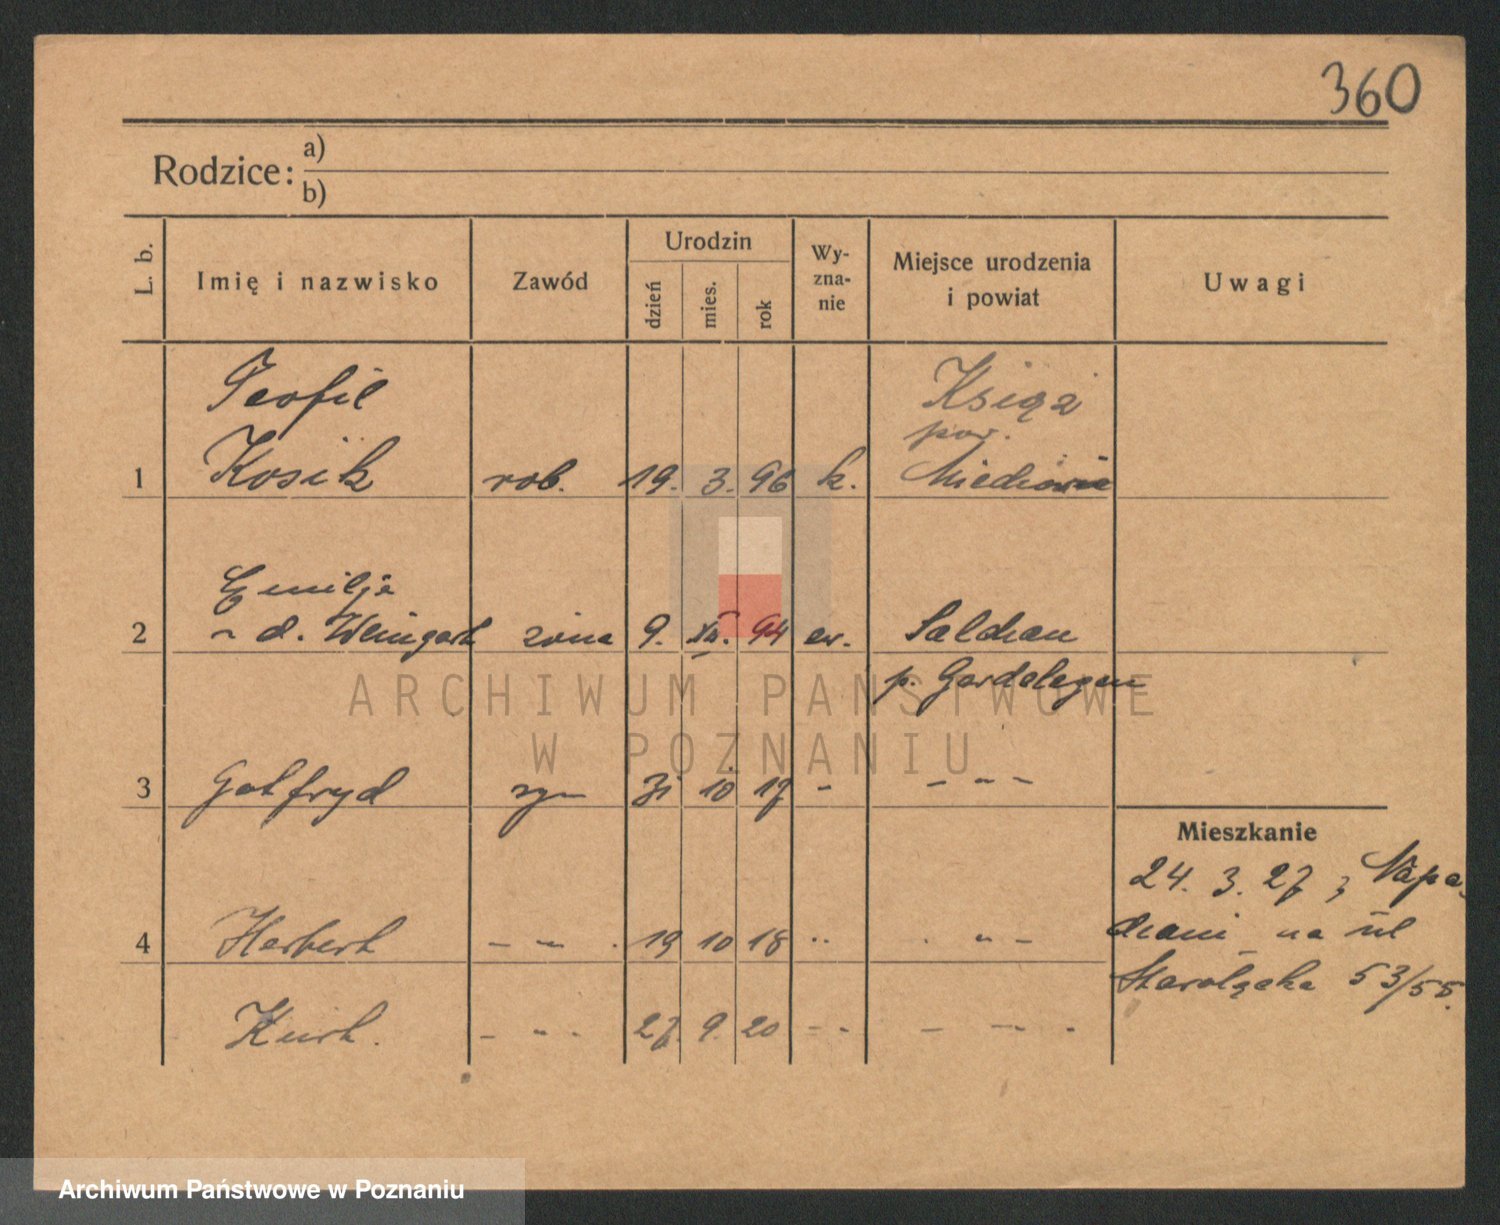 360
Rodzice:
a)
b)
L. b. Imię i nazwisko Zawód Urodzin dzień mies. rok Wy-zna-nie Miejsce urodzenia i powiat Uwagi
Teofil Książ
pow.
1 Kosik rob. 19. 3. 96 k. Miechowie
Emilja
2 d. Weingart żona 9. XII. 94 ew. Salchau
p. Gardelegen
3 Gotfryd syn 31 10 17 - - " -
Mieszkanie
24. 3. 27 z
4 Herbert - " - 19 10 18 " - " -
na ul
Starołęcka 53/55.
Kurt. - " - 27. 9. 20 - " - - " -
ARCHIWUM PAŃSTWOWE
W POZNANIU
Archiwum Państwowe w Poznaniu